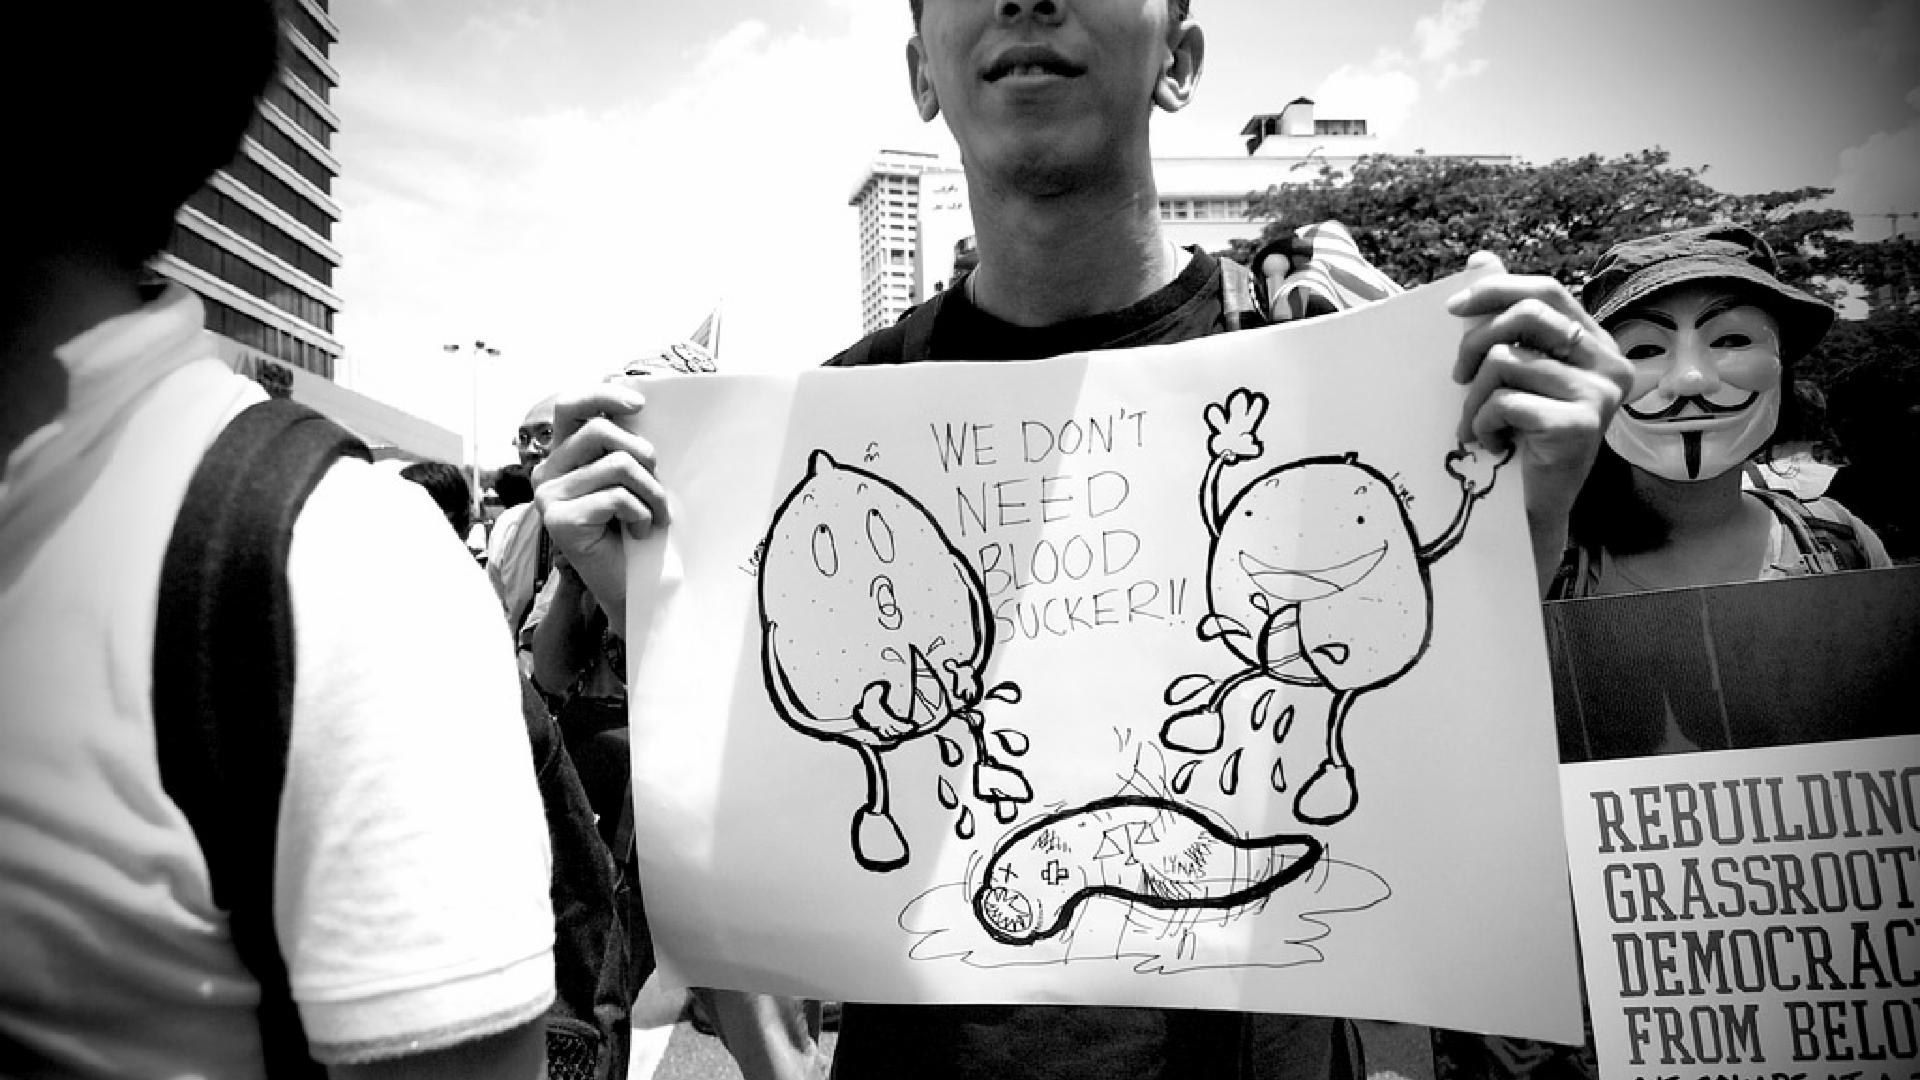 WE DON'T
NEED
BLOOD
SUCKER!!
Lime
LYNAS
REBUILDING
GRASSROOTS
DEMOCRAC
FROM BELO